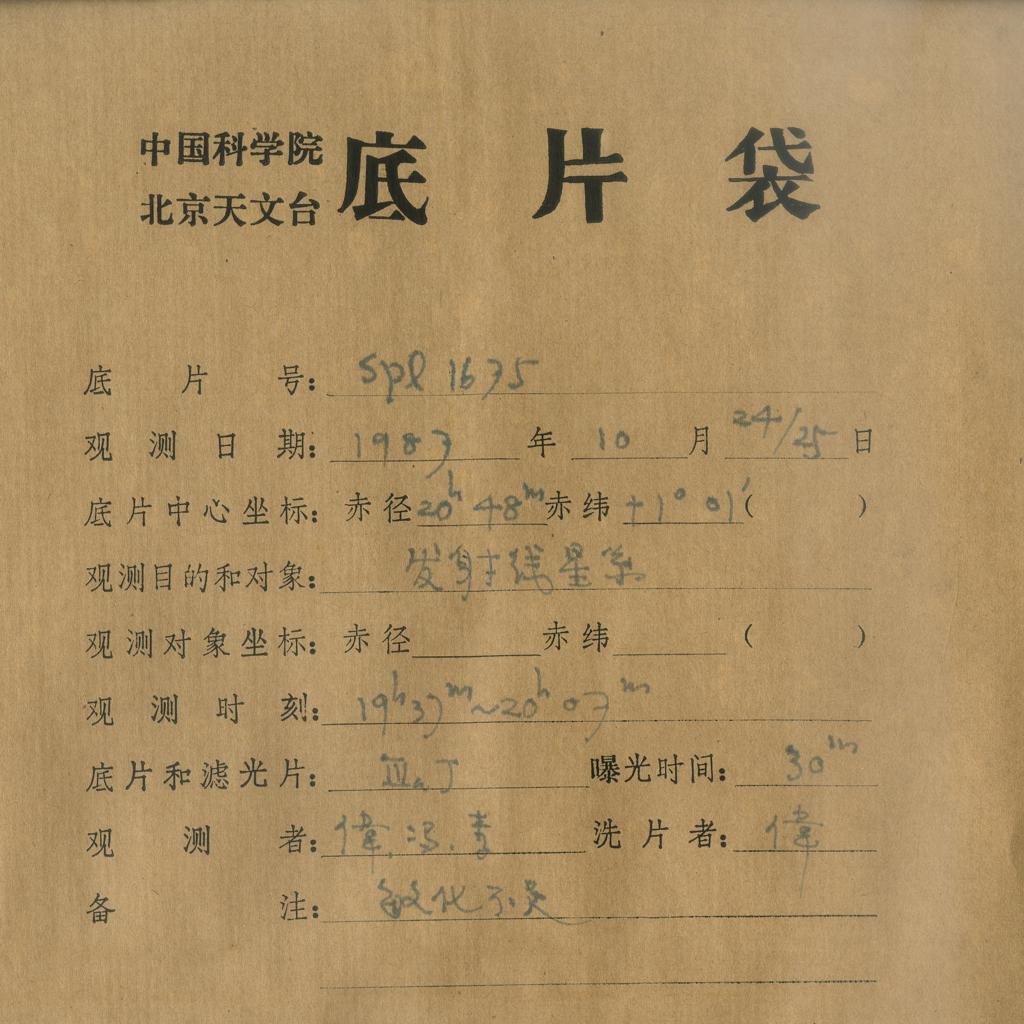 中国科学院
北京天文台
底片袋
底片号：Spl 1675
观测日期：1983年10月24/25日
底片中心坐标：赤径20h 48m赤纬+1° 01′( )
观测目的和对象：发射线星系
观测对象坐标：赤径 赤纬 ( )
观测时刻：19h37m~20h07m
底片和滤光片：IIIaJ 曝光时间：30m
观测者：偉.冯.李 洗片者：偉
备注：敏化不灵